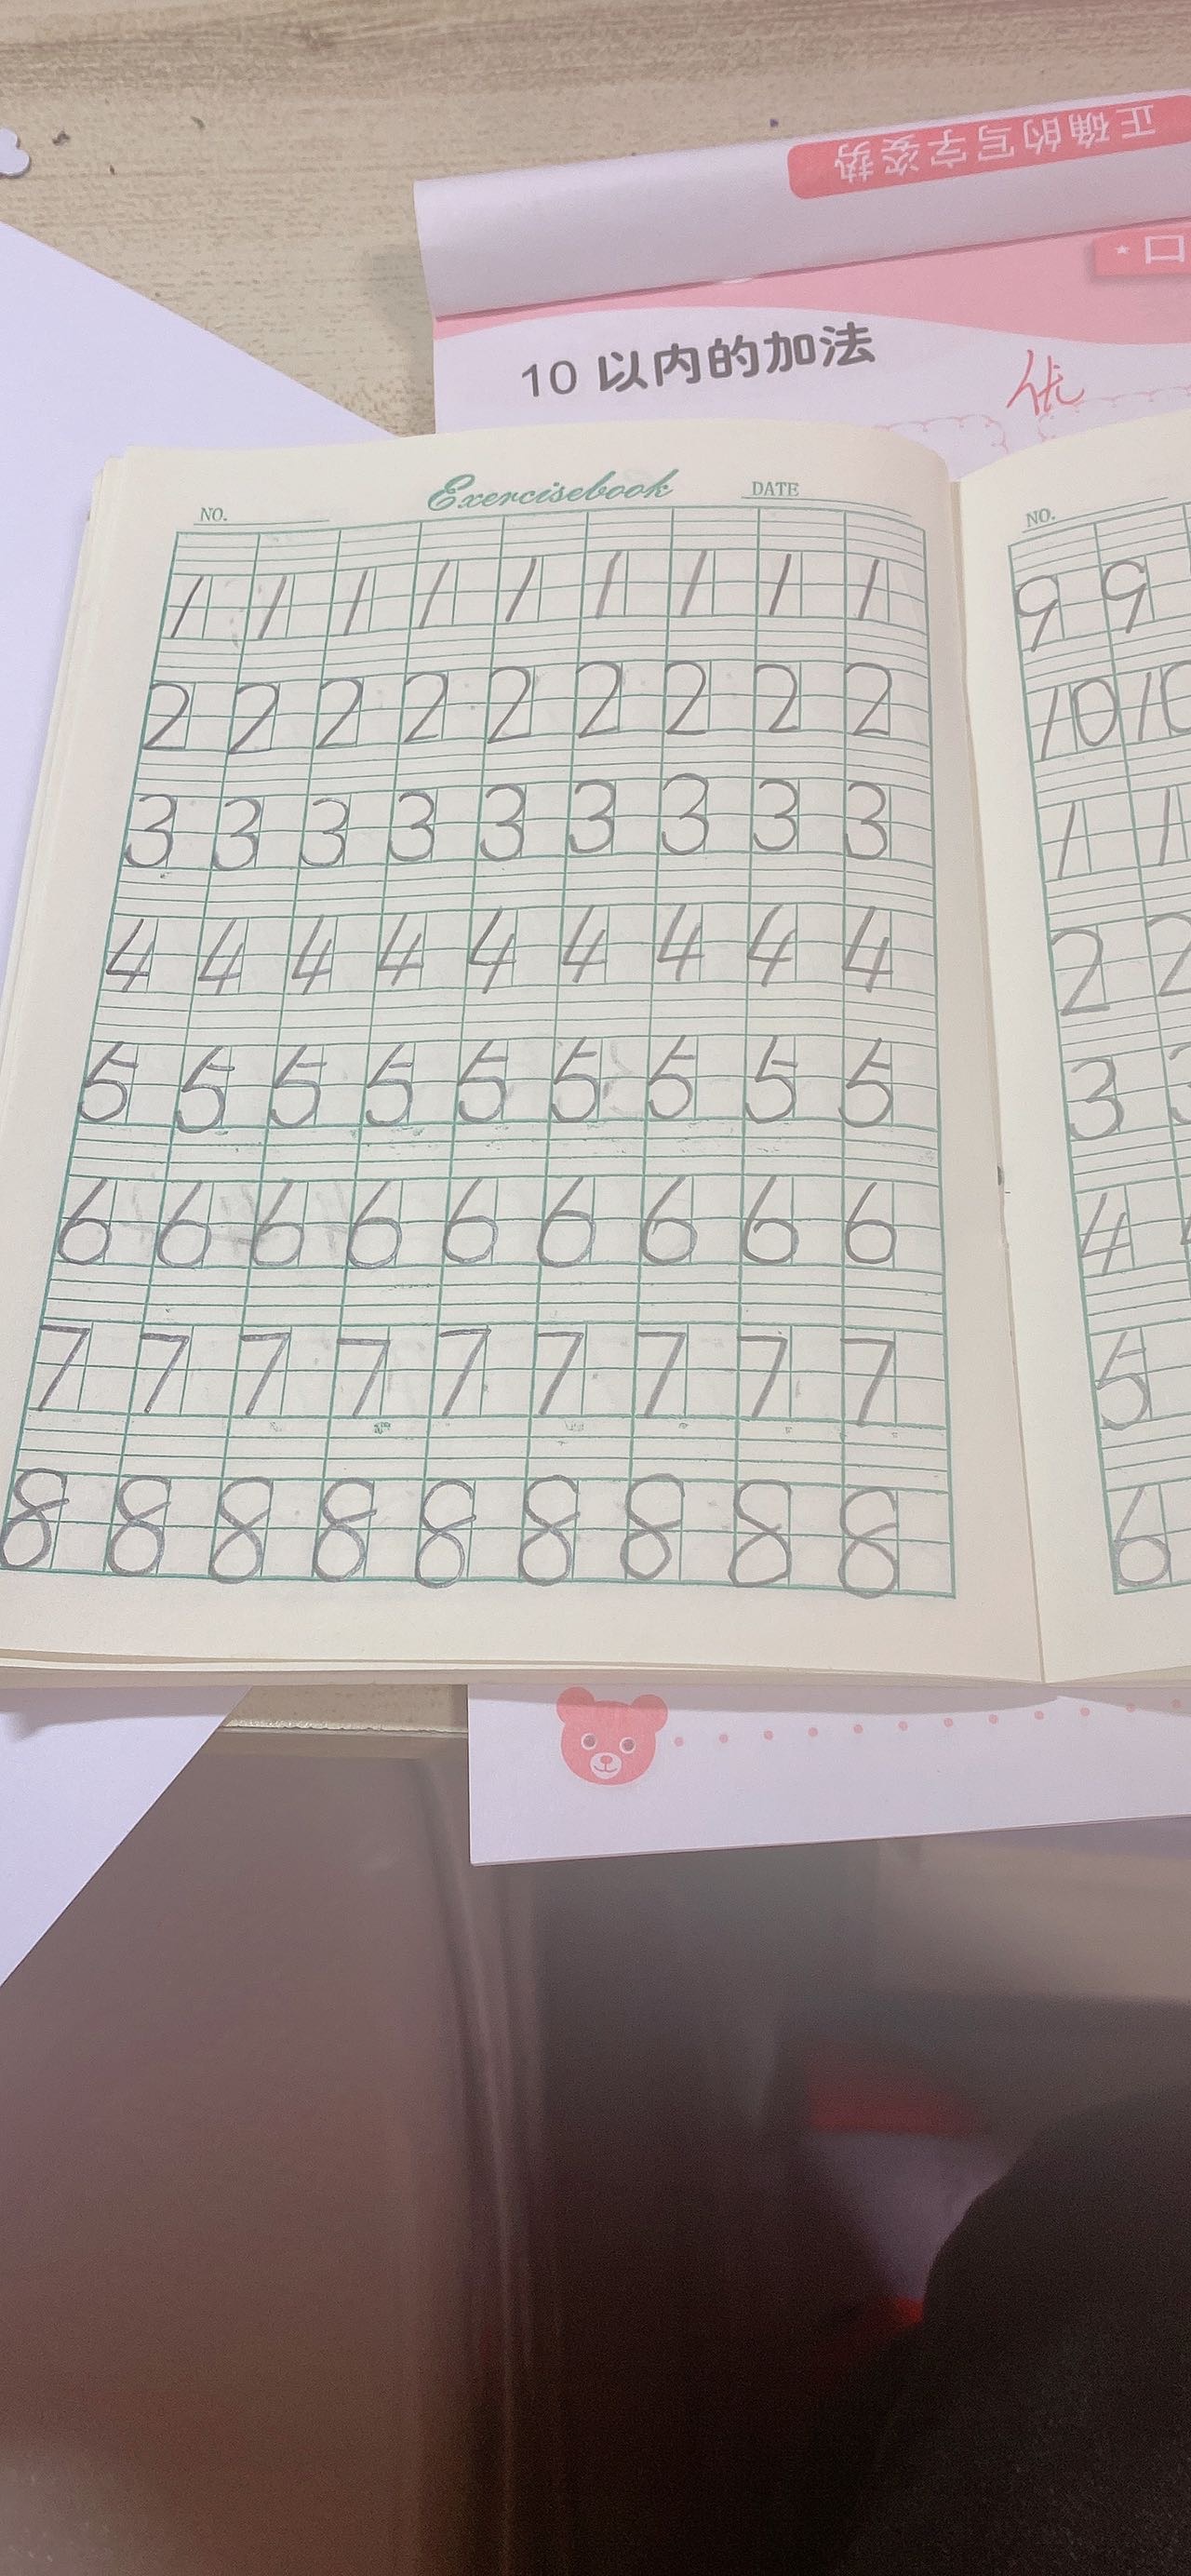 正确的写字姿势
口
10 以内的加法
优
Exercisebook
NO.
DATE
1 1 1 1 1 1 1 1 1
2 2 2 2 2 2 2 2 2
3 3 3 3 3 3 3 3 3
4 4 4 4 4 4 4 4 4
5 5 5 5 5 5 5 5 5
6 6 6 6 6 6 6 6 6
7 7 7 7 7 7 7 7 7
8 8 8 8 8 8 8 8 8
NO.
9 9
10 10
1 1
2 2
3 3
4
5
6